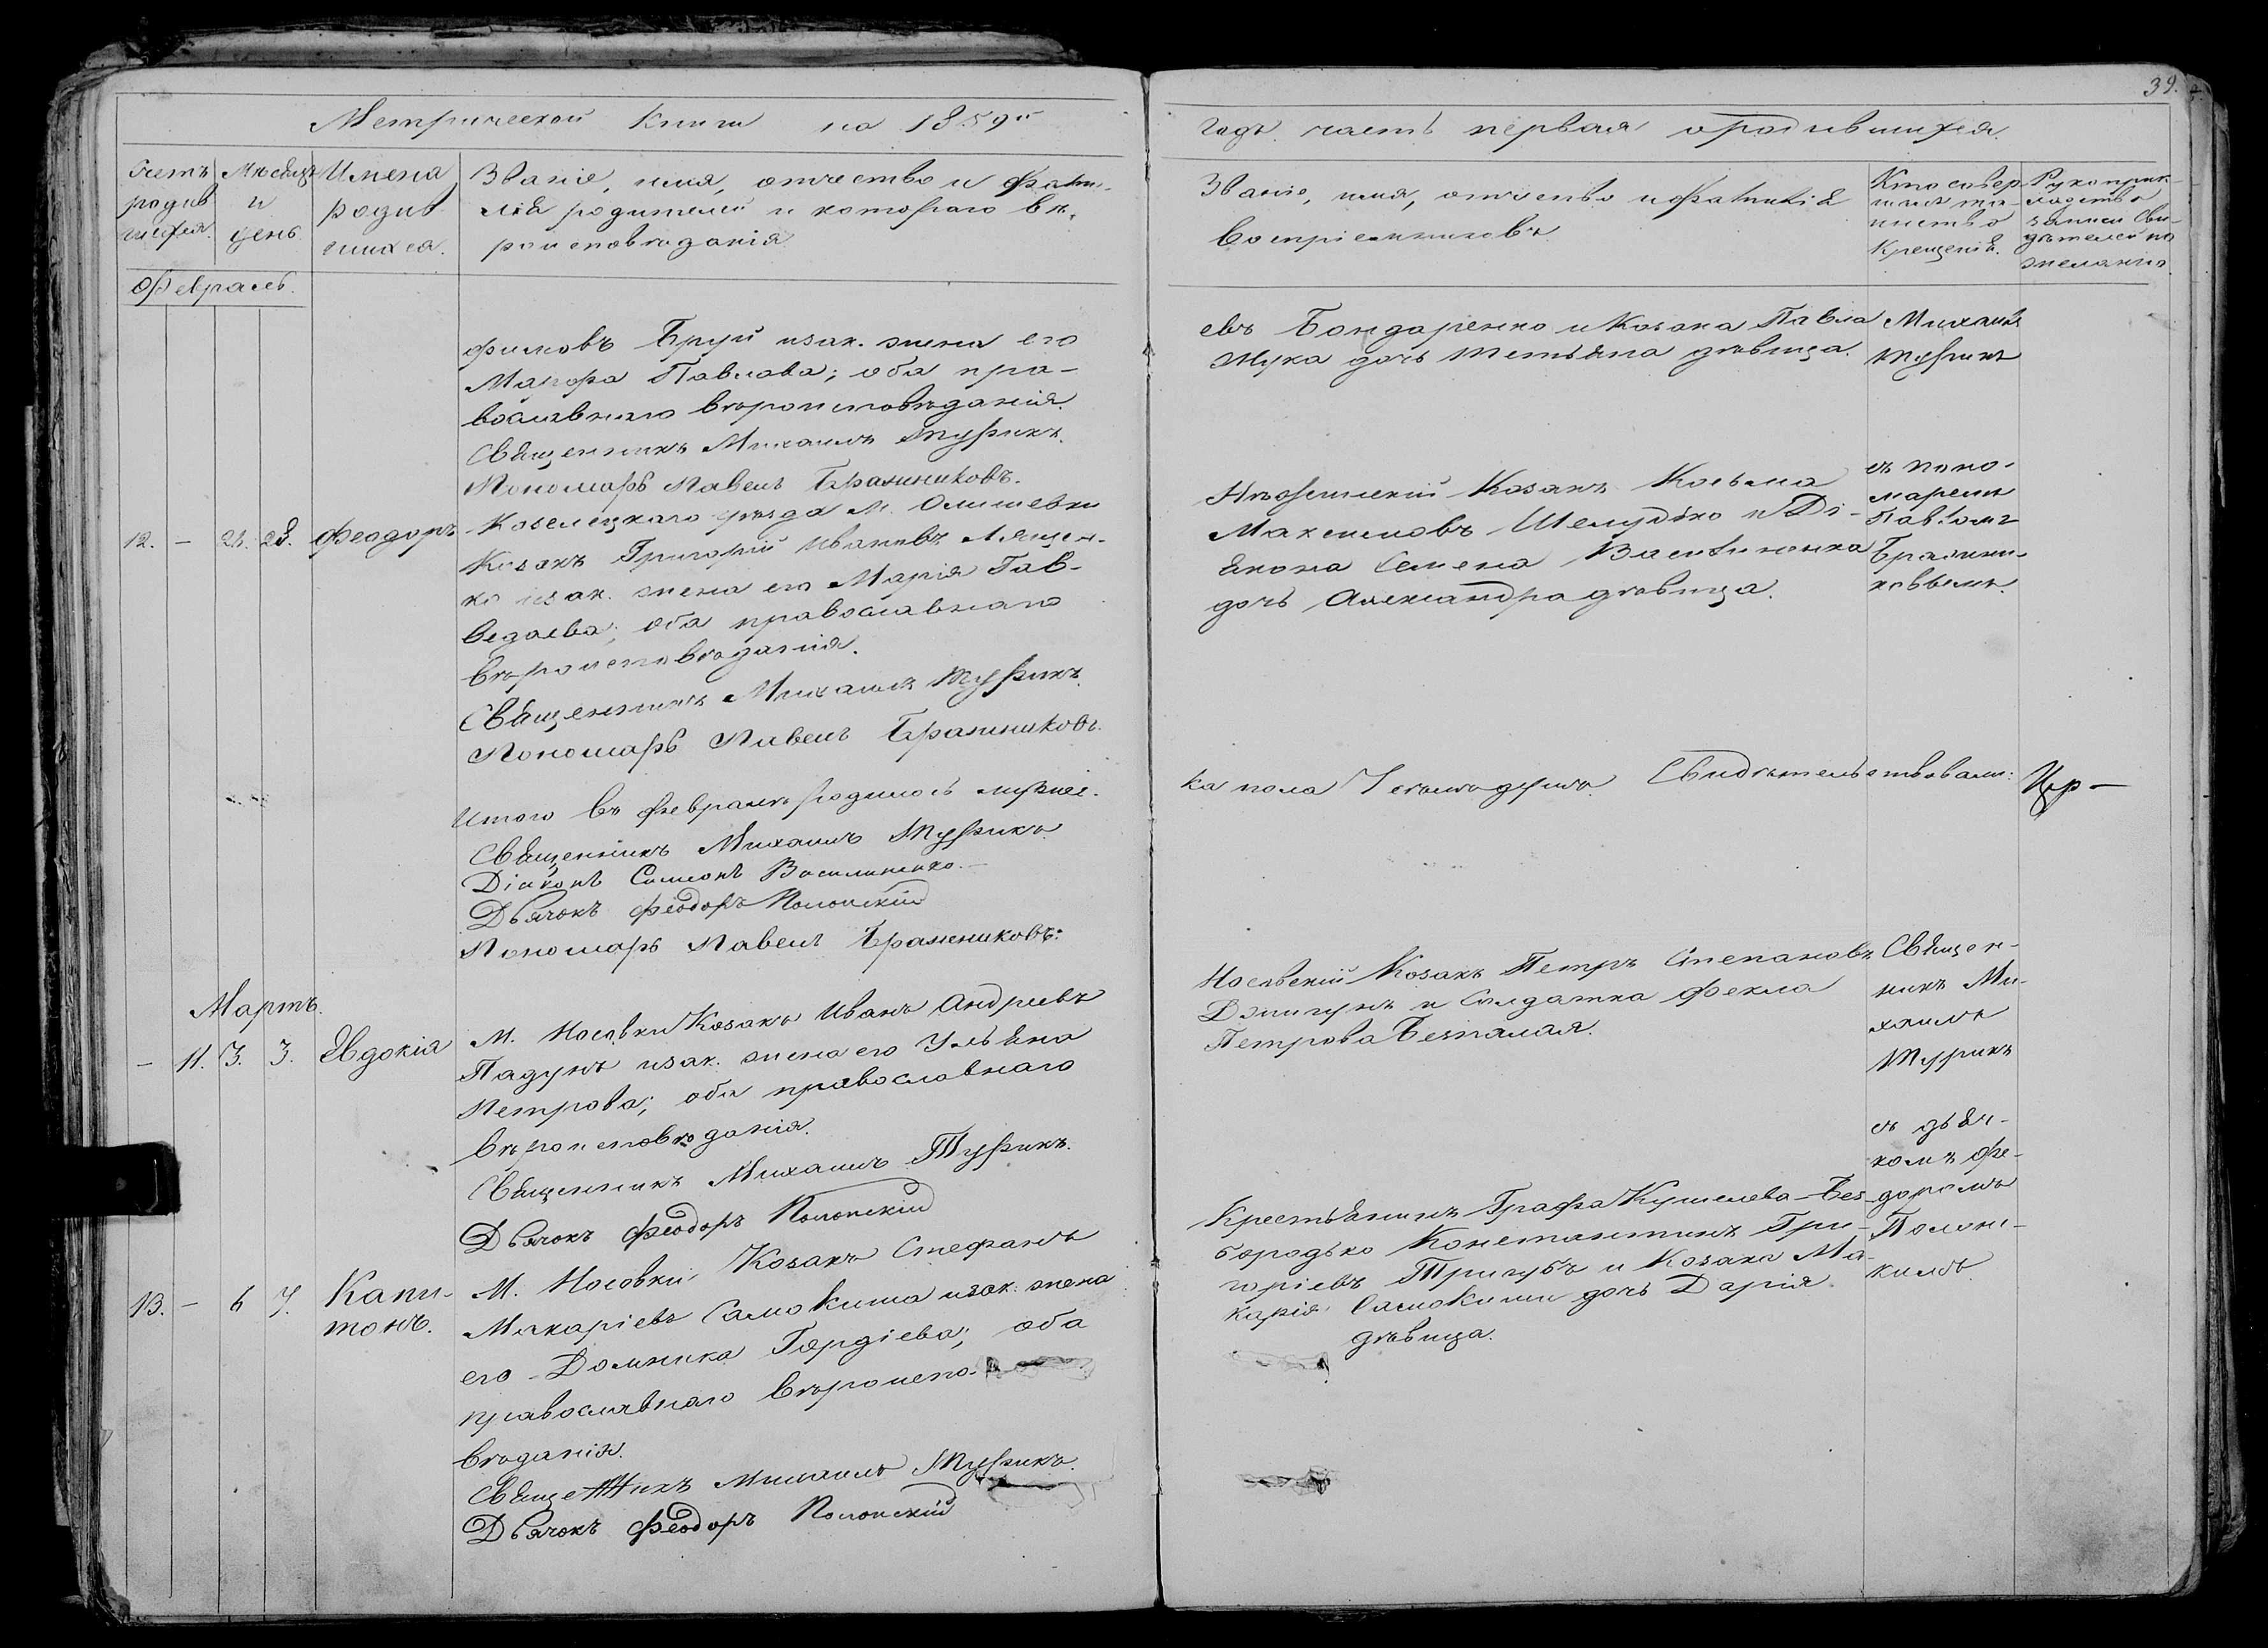 39.
Метрической Книги на 1859й
годъ часть первая о родившихся.
Счетъ родив шихся.
Мѣсяцъ и день
Имена родив шихся.
Званіе, имя, отчество и фами-
лія родителей и котораго вѣ-
роисповѣданія
Званіе, имя, отчество и фамилія
Воспріемниковъ
Кто совер-
шилъ та-
инство
Крещенія.
Рукоприк-
ладство
записи сви-
дѣтелей по
желанію
Февраль.
фимовъ Бруй изак. жена его
Марфа Павлова; оба пра-
вославнаго вѣроисповѣданія.
Священникъ Михаилъ Турикъ.
Пономарь Павелъ Бражниковъ.
евъ Бондаренко и Козака Павла
Мука дочь Тетьяна дѣвица.
Михаилъ
Турикъ
12. – 28. 28. Феодоръ
Козелецкаго уѣзда М. Олишевки
Козакъ Григорій Ивановъ Лящен-
ко изак. жена его Марія Гав-
ведаева; оба православнаго
вѣроисповѣданія.
Священникъ Михаилъ Турикъ.
Пономарь Павелъ Бражниковъ.
Нѣжинскій Козакъ Косьма
Максимовъ Шелудько и Ді-
якона Семена Василиненка
дочь Александра дѣвица.
съ поно-
маремъ
Павломъ
Бражни-
ковымъ.
Итого въ февралѣ родилось мужес-
ка пола Свидѣтельствовали:
Священникъ Михаилъ Турикъ
Діаконъ Симеонъ Василиненко.
Дьячокъ Феодоръ Полонскій
Пономарь Павелъ Бражниковъ.
Мартъ.
– 11. 3. 3. Евдокія
М. Носовки Козакъ Иванъ Андреевъ
Падунъ изак. жена его Ульяна
Петрова; оба православнаго
вѣроисповѣданія.
Священникъ Михаилъ Турикъ.
Дьячокъ Феодоръ Полонскій
Носовскій Козакъ Петръ Степановъ
Дзигунъ и Солдатка Фекла
Петрова Безпалая.
Священ-
никъ Ми-
хаилъ
Турикъ
съ дьяч-
комъ Фе-
доромъ
Полонс-
кимъ
13. – 6 7. Капи-
тонъ.
М. Носовки Козакъ Стефанъ
Макаріевъ Самокиша изак. жена
его Домника Гордіева; оба
православнаго вѣроиспо-
вѣданія.
Священникъ Михаилъ Турикъ.
Дьячокъ Феодоръ Полонскій
Крестьянинъ Графа Кушелева-Без-
бородько Константинъ Гри-
горіевъ Тригубъ и Козака Ма-
карія Самокиши дочь Дарія
дѣвица.